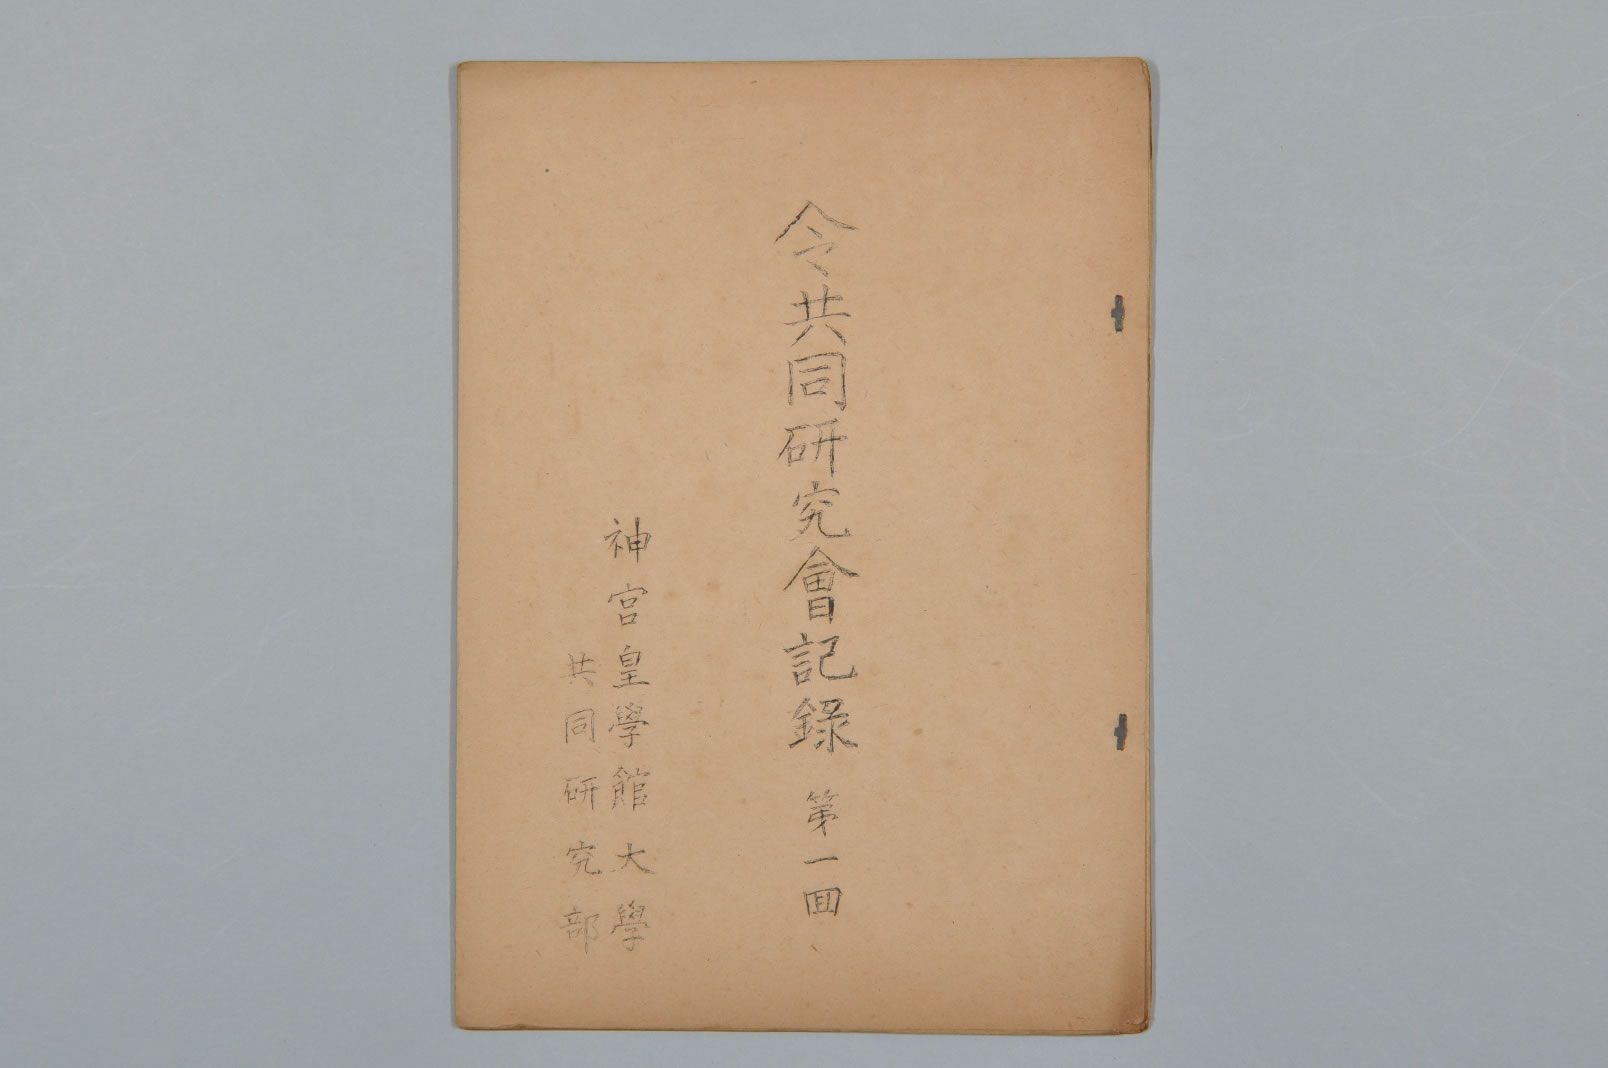 令共同研究會記錄 第一回
神宮皇學館大學
共同研究部